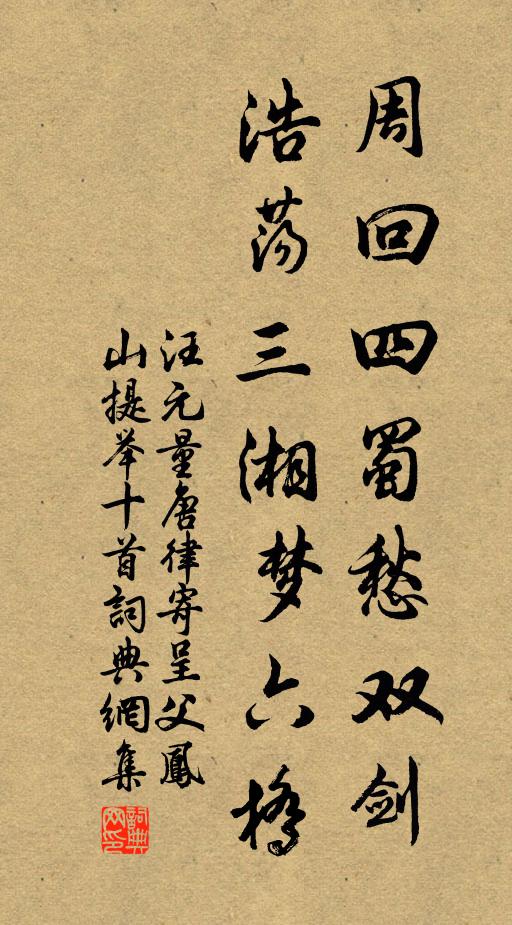 周回四蜀愁双剑
浩荡三湘梦六桥
汪元量唐律寄呈父鳳
山提举十首詞典網集
詞典网印